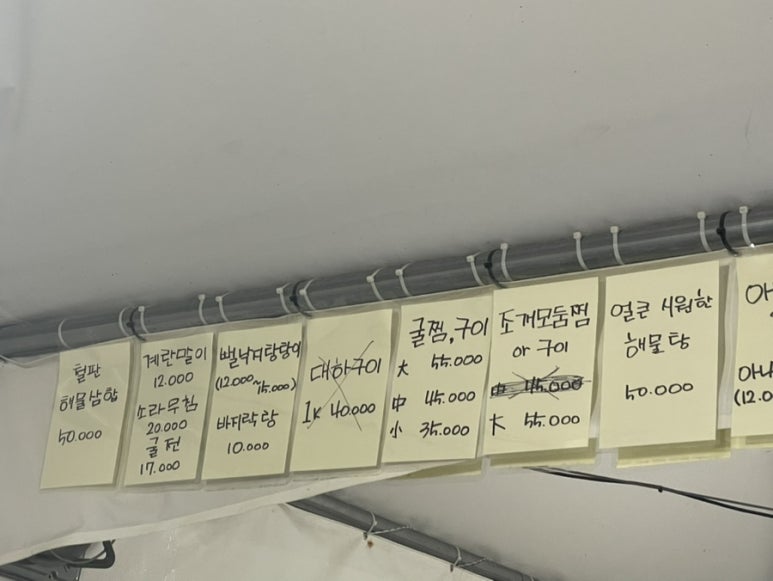 철판
해물삼합
50.000
계란말이
12.000
소라무침
20.000
굴전
17.000
뻘낙지탕탕이
(12.000~15.000)
바지락탕
10.000
대하구이
1K 40.000
굴찜,구이
大 55.000
中 45.000
小 35.000
조개모둠찜
or 구이
中 45.000
大 55.000
얼큰 시원한
해물탕
50.000
(12.0